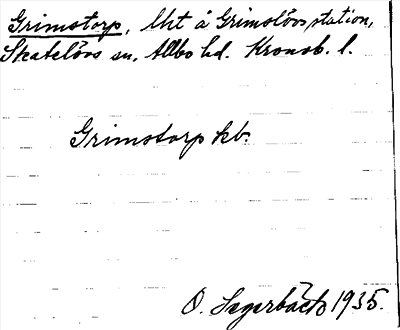 Grimstorp, lht å Grimslövs station,
Skatelövs sn, Allbo hd. Kronob. l.
Grimstorp kb.
O. Sagerbäck 1935.